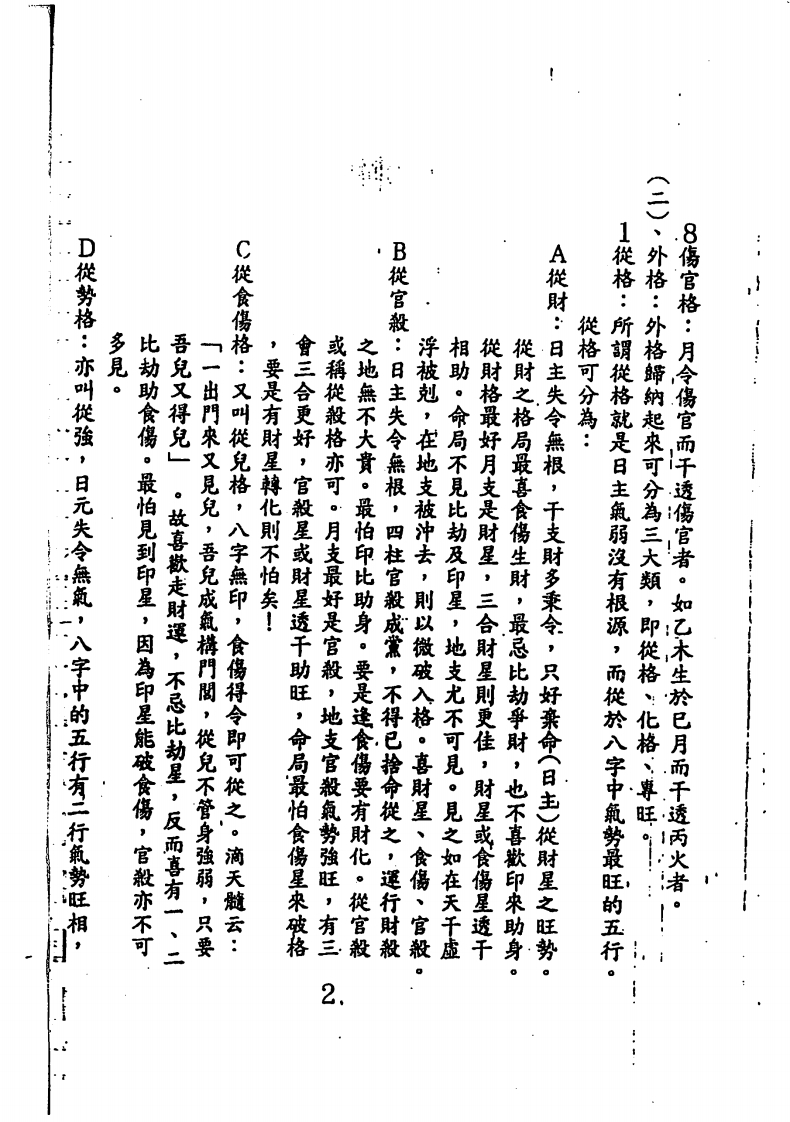 8傷官格：月令傷官而干透傷官者。如乙木生於巳月而干透丙火者。
(二)、外格：外格歸納起來可分為三大類，即從格、化格、專旺。
1從格：所謂從格就是日主氣弱沒有根源，而從於八字中氣勢最旺的五行。
從格可分為：
A從財：日主失令無根，干支財多秉令，只好棄命(日主)從財星之旺勢。
從財之格局最喜食傷生財，最忌比劫爭財，也不喜歡印來助身。
從財格最好月支是財星，三合財星則更佳，財星或食傷星透干
相助。命局不見比劫及印星，地支尤不可見。見之如在天干虛
浮被剋，在地支被沖去，則以微破入格。喜財星、食傷、官殺。
B從官殺：日主失令無根，四柱官殺成黨，不得已捨命從之，運行財殺
之地無不大貴。最怕印比助身。要是逢食傷要有財化。從官殺
或稱從殺格亦可。月支最好是官殺，地支官殺氣勢強旺，有三
會三合更好，官殺星或財星透干助旺，命局最怕食傷星來破格
，要是有財星轉化則不怕矣！
C從食傷格：又叫從兒格，八字無印，食傷得令即可從之。滴天髓云：
「一出門來又見兒，吾兒成氣構門閭，從兒不管身強弱，只要
吾兒又得兒」。故喜歡走財運，不忌比劫星，反而喜有一、二
比劫助食傷。最怕見到印星，因為印星能破食傷，官殺亦不可
多見。
D從勢格：亦叫從強，日元失令無氣，八字中的五行有二行氣勢旺相，
2.